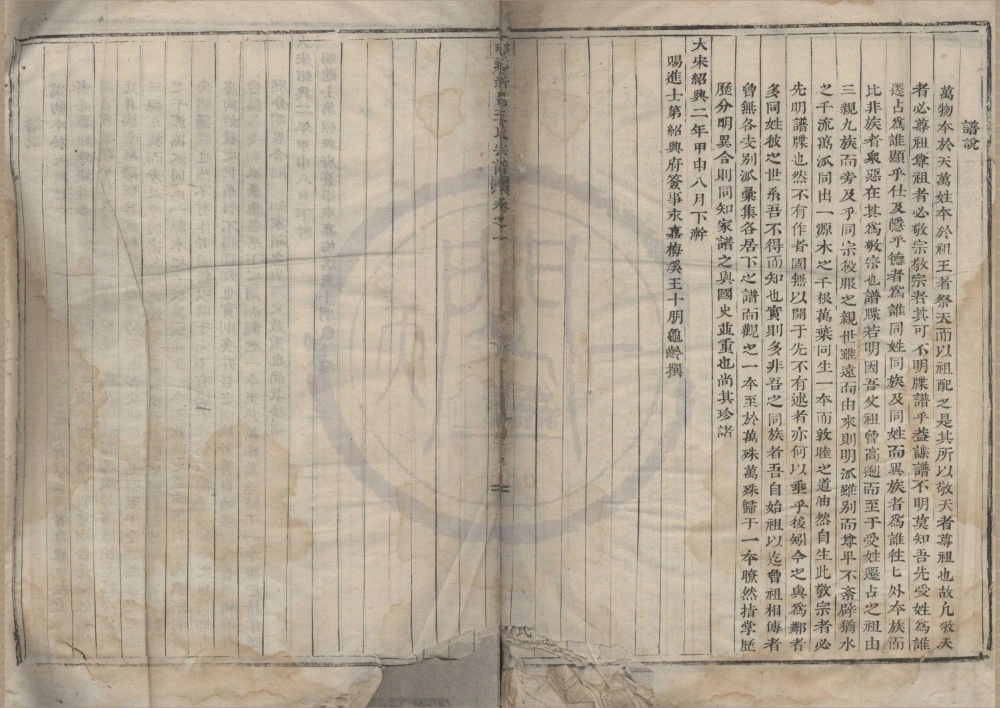 譜說
萬物本於天萬姓本於祖王者祭天而以祖配之是其所以敬天者尊祖也故凡敬天
者必尊祖尊祖者必敬宗敬宗者其可不明牒譜乎蓋譜不明莫知吾先受姓爲誰
遷占爲誰顯乎仕及隱乎德者爲誰同姓同族及同姓而異族者爲誰徃七外夲族而
比非族者衆惡在其爲敬宗也譜牒若明因吾父祖曾高遡而至于受姓遷占之祖由
三親九族而旁及乎同宗殺服之親世雖遠而由來則明派雖别而尊卑不紊辟猶水
之千流萬派同出一源木之千极萬葉同生一本而敦睦之道油然自生此敬宗者必
先明譜牒也然不有作者固無以開于先不有述者亦何以垂乎後矧今之與爲鄰者
多同姓彼之世系吾不得而知也實則多非吾之同族者吾自始祖以迄曾祖相傳者
曾無各支别派彙集各居下之譜而觀之一本至於萬殊萬殊歸于一本瞭然指掌歷
歷分明異合則同知家譜之與國史並重也尚其珍諸
大宋紹興二年甲申八月下澣
賜進士第紹興府簽事永嘉梅溪王十朋龜齡撰
新昌王氏宗譜 卷之一
氏